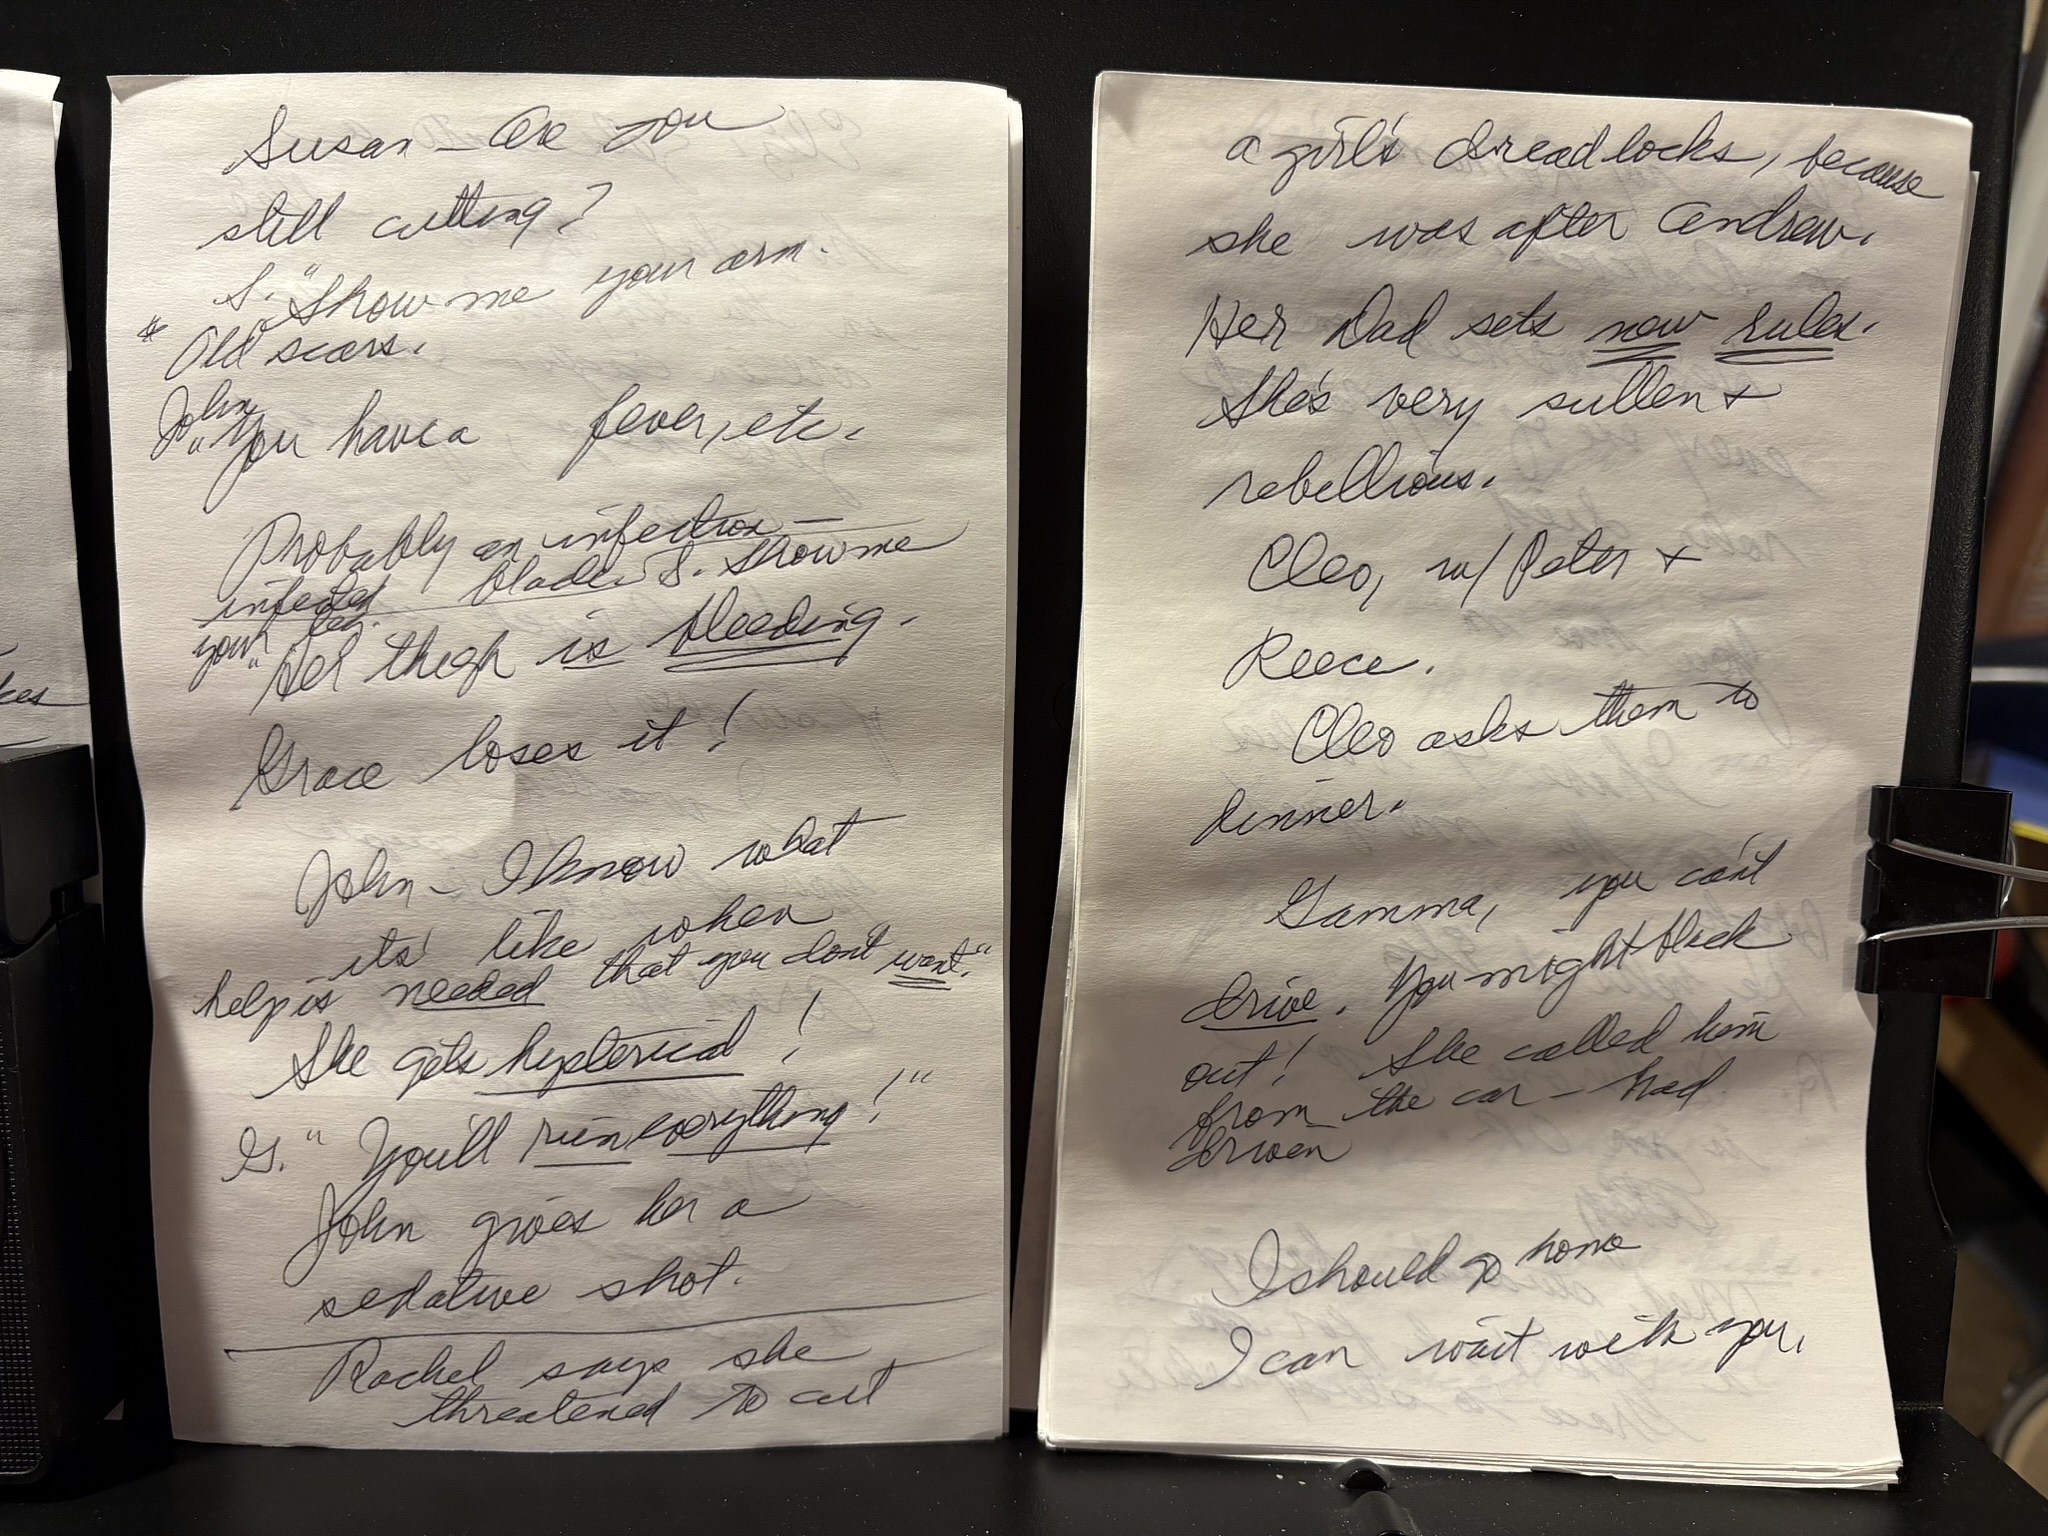 Susan - Are you
still cutting?
S. "Show me your arm.
* Old scars.
John
"You have a fever, etc.
Probably an infection —
infected blade. S. Show me
your leg.
"Her thigh is bleeding.
Grace loses it!
John - I know what
its' like when
help is needed that you don't want."
She gets hysterical!
G. "You'll ruin everything!"
John gives her a
sedative shot.
Rachel says she
threatened to cut
a girl's dreadlocks, because
she was after Andrew.
Her Dad sets new rules.
She's very sullen +
rebellious.
Cleo, w/ Peter +
Reece.
Cleo asks them to
dinner.
Gamma, you can't
drive. You might black
out! She called him
from the car - had
driven
I should go home
I can wait with you.
kes